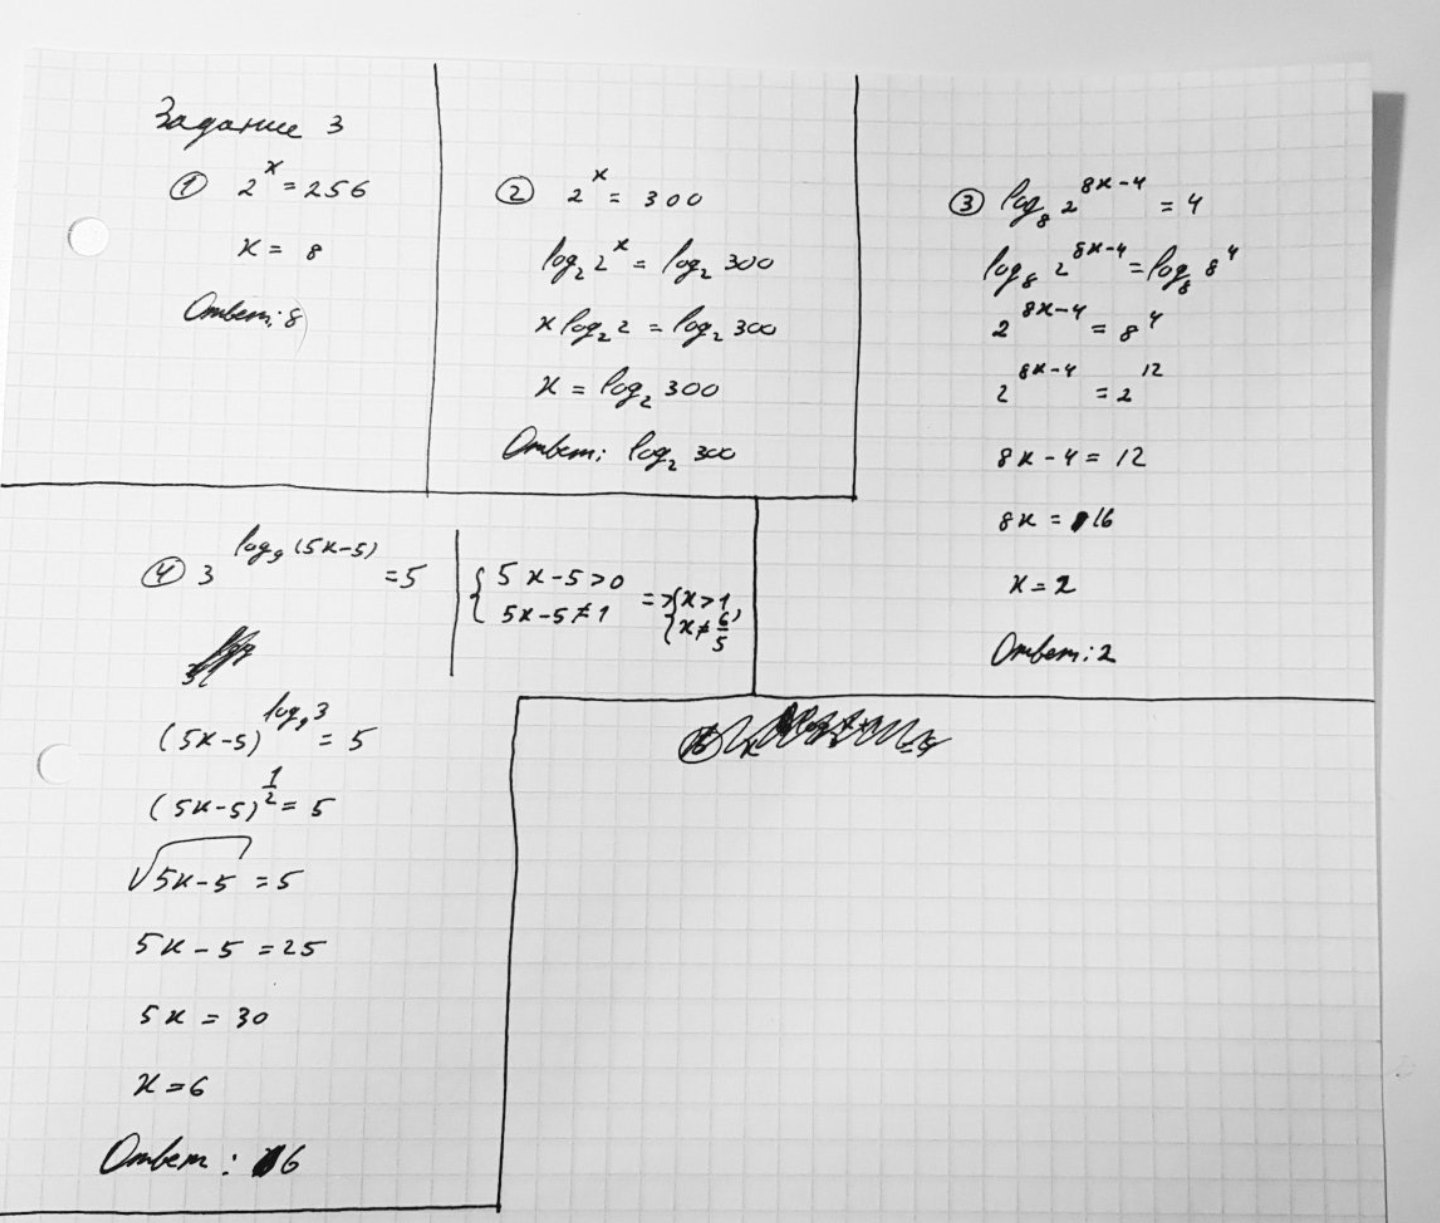 Задание 3
① 2^x = 256
x = 8
Ответ: 8
② 2^x = 300
log₂ 2^x = log₂ 300
x log₂ 2 = log₂ 300
x = log₂ 300
Ответ: log₂ 300
③ log₈ 2^(8x-4) = 4
log₈ 2^(8x-4) = log₈ 8^4
2^(8x-4) = 8^4
2^(8x-4) = 2^12
8x - 4 = 12
8x = 16
x = 2
Ответ: 2
④ 3^(log₉ (5x-5)) = 5 | { 5x-5>0 => { x>1
5x-5≠1 x≠6/5
(5x-5)^(log₉ 3) = 5
(5x-5)^(1/2) = 5
√5x-5 = 5
5x - 5 = 25
5x = 30
x = 6
Ответ: 6